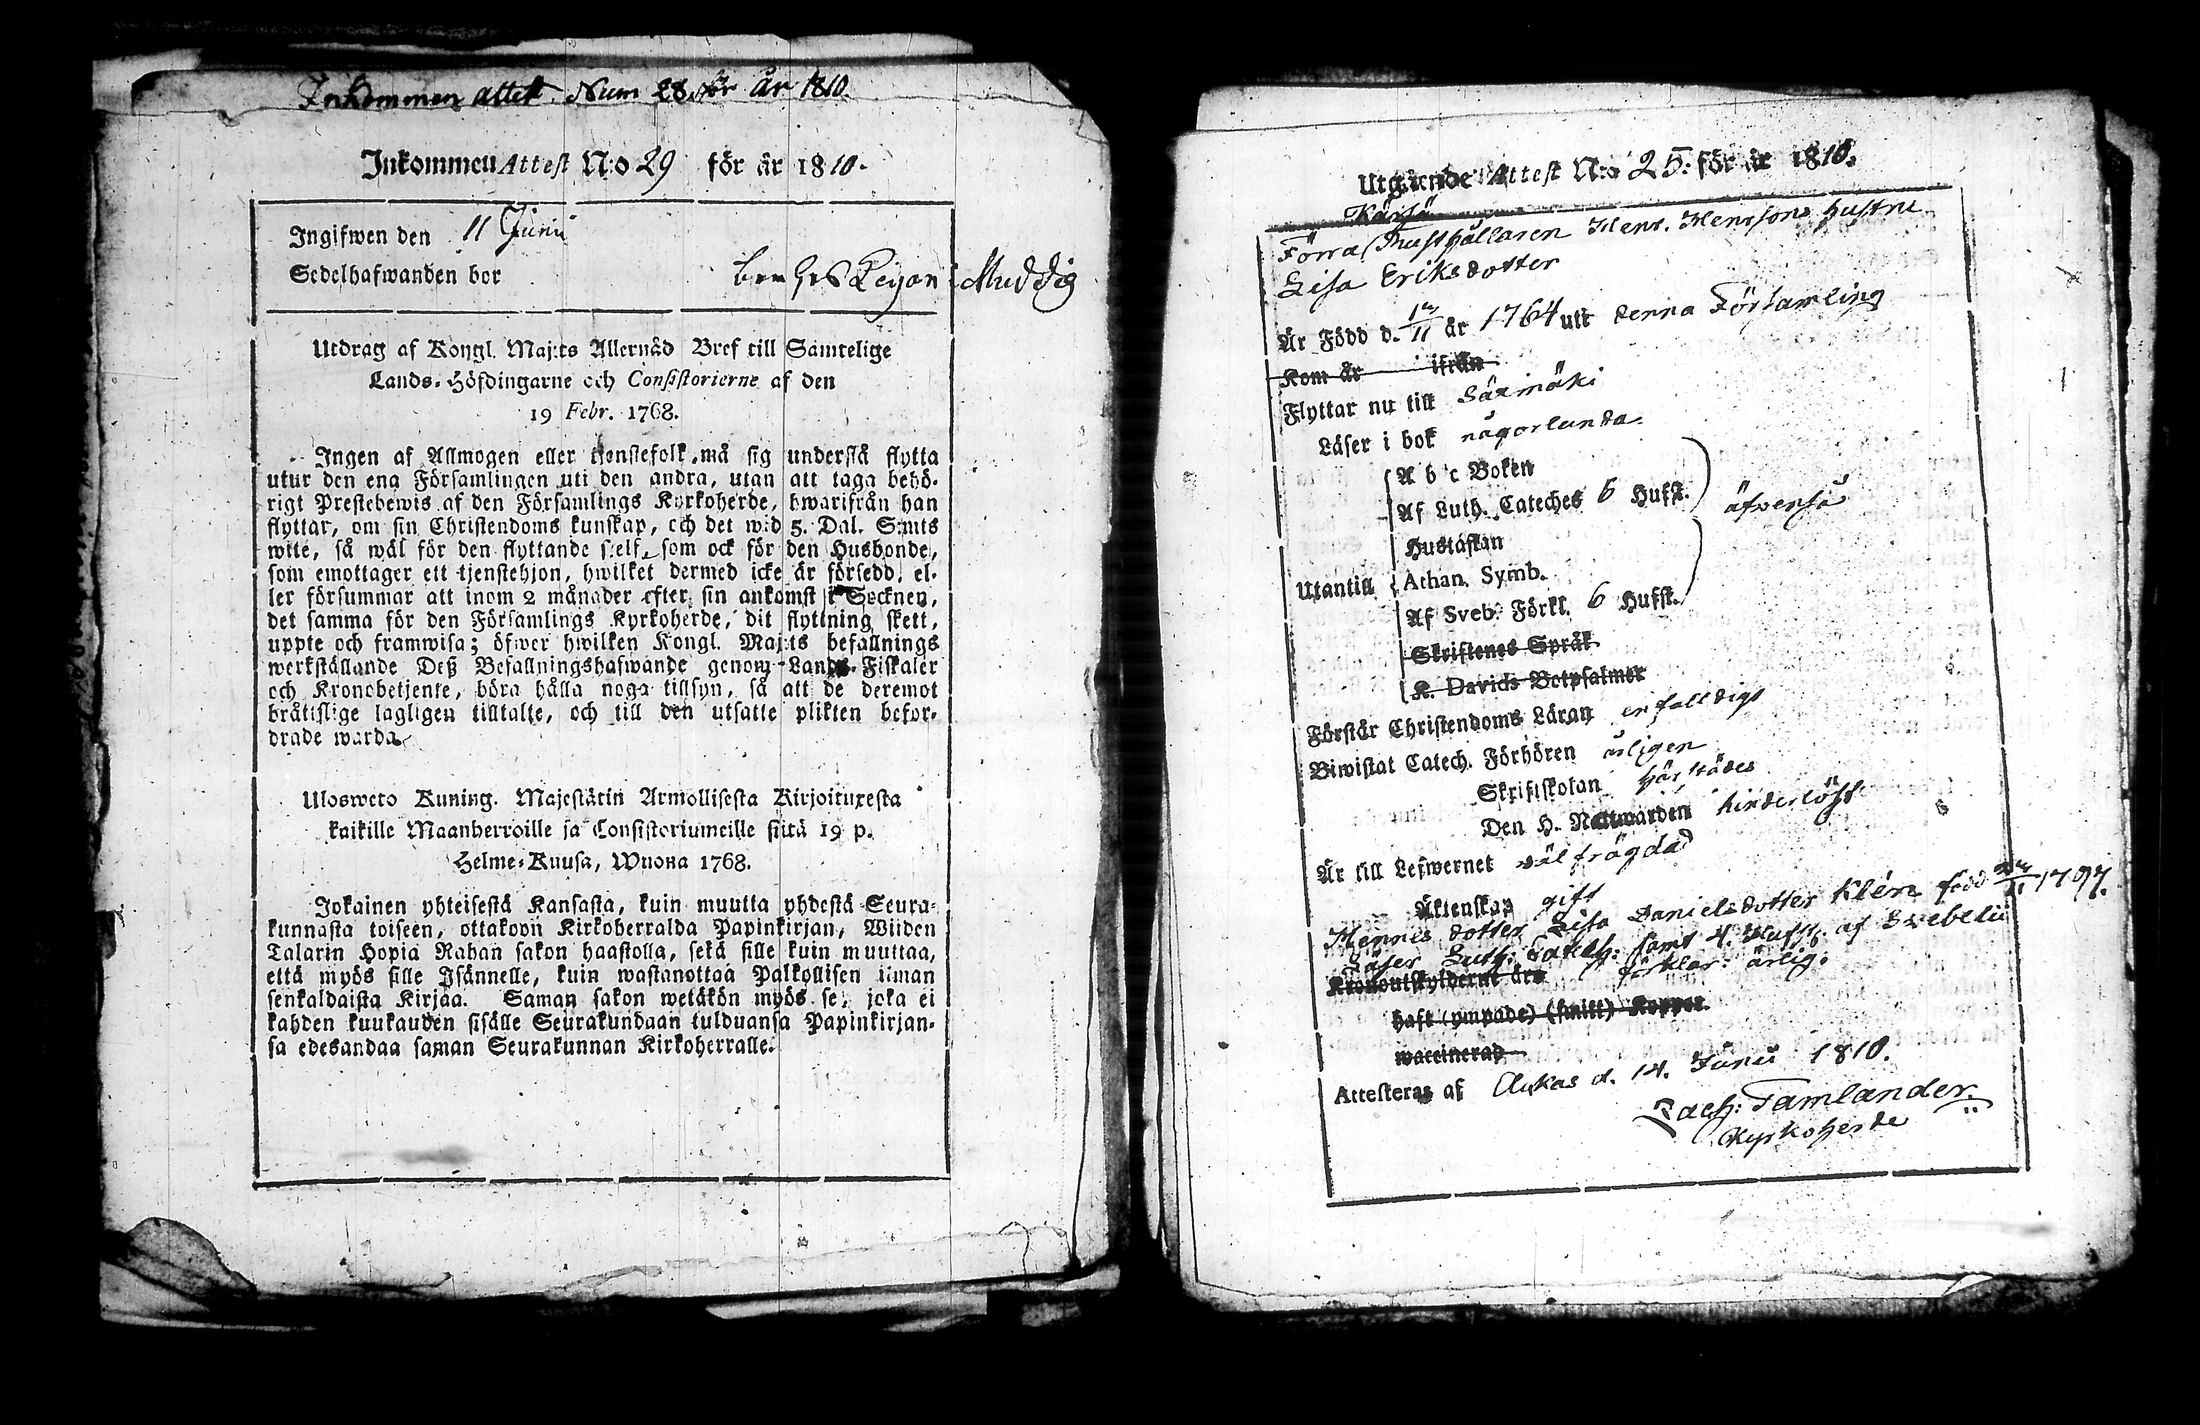 Inkommen attest Num 28 för år 1810.
Inkommen Attest N:o 29 för år 1810.
Ingifwen den 11 Junii
Sedelhafwanden bor i Muddig
Utdrag af Kongl. Maj:ts Allernåd Bref till Samtelige
Lands-Höfdingarne och Consistorierne af den
19 Febr. 1768.
Ingen af Allmogen eller tjenstefolk må sig understå flytta
utur den ena Församlingen uti den andra, utan att taga behö-
rigt Prestebewis af den Församlings Kyrkoherde, hwarifrån han
flyttar, om sin Christendoms kunskap, och det wid 5. Dal. S:mts
wite, så wäl för den flyttande sielf, som ock för den Husbonde,
som emottager ett tjenstehjon, hwilket dermed icke är försedd, el-
ler försummar att inom 2 månader efter sin ankomst i Socknen,
det samma för den Församlings Kyrkoherde, dit flyttning skett,
uppte och framwisa; öfwer hwilken Kongl. Maj:ts befallnings
werkställande Deß Befallningshafwande genom Lands-Fiskaler
och Kronobetjente, böra hålla noga tillsyn, så att de deremot
bråtislige lagligen tilltalte, och till den utsatte plikten befor-
drade warda.
Ulosweto Kuning. Majestätin Armollisesta Kirjoituxesta
kaikille Maanherroille ja Consistoriumeille siitä 19 p.
Helme-Kuusa, Wuona 1768.
Jokainen yhteisestä Kansasta, kuin muutta yhdestä Seura-
kunnasta toiseen, ottakoon Kirkoherralda Papinkirjan, Wiiden
Talarin Hopia Rahan sakon haastolla, sekä sille kuin muuttaa,
että myös sille Isännelle, kuin wastanottaa Palkollisen ilman
senkaldaista Kirjaa. Saman sakon wetäkön myös se, joka ei
kahden kuukauden sisälle Seurakundaan tulduansa Papinkirjan-
sa edesandaa saman Seurakunnan Kirkoherralle.
Utgående Attest N:o 25. för år 1810.
Kärsä
Förra Rusthållaren Henr. Henrsons hustru
Lisa Eriksdotter
Är Född d. 12/11 år 1764 utt denna Församling
Kom år ifrån
Flyttar nu till Säxmäki
Läser i bok någorlunda.
A b c Boken
Af Luth. Cateches 6 Hufst. äfvenså
Hustaflan
Utantill Athan. Symb.
Af Sveb. Förkl. 6 Hufst.
Skriftenes Språk
K. Davids Botpsalmer
Förstår Christendoms Läran enfalldigt
Biwistat Catech. Förhören årligen
Skriftskolan härstädes
Den H. Nattwarden hinderlöst
Är till Lefwernet väl frägdad
Äktenskap gift
Hennes dotter Lisa Danielsdotter Klén född 1797.
Läser Luth. Catech: samt 4. Hufst. af Svebelii
förklar: ärlig.
Kronoutskylderne års
haft (ympade) (smitt) Koppor
waccinerad
Attesteras af Aukas d. 14. Junii 1810.
Zach: Tamlander.
Kyrkoherde